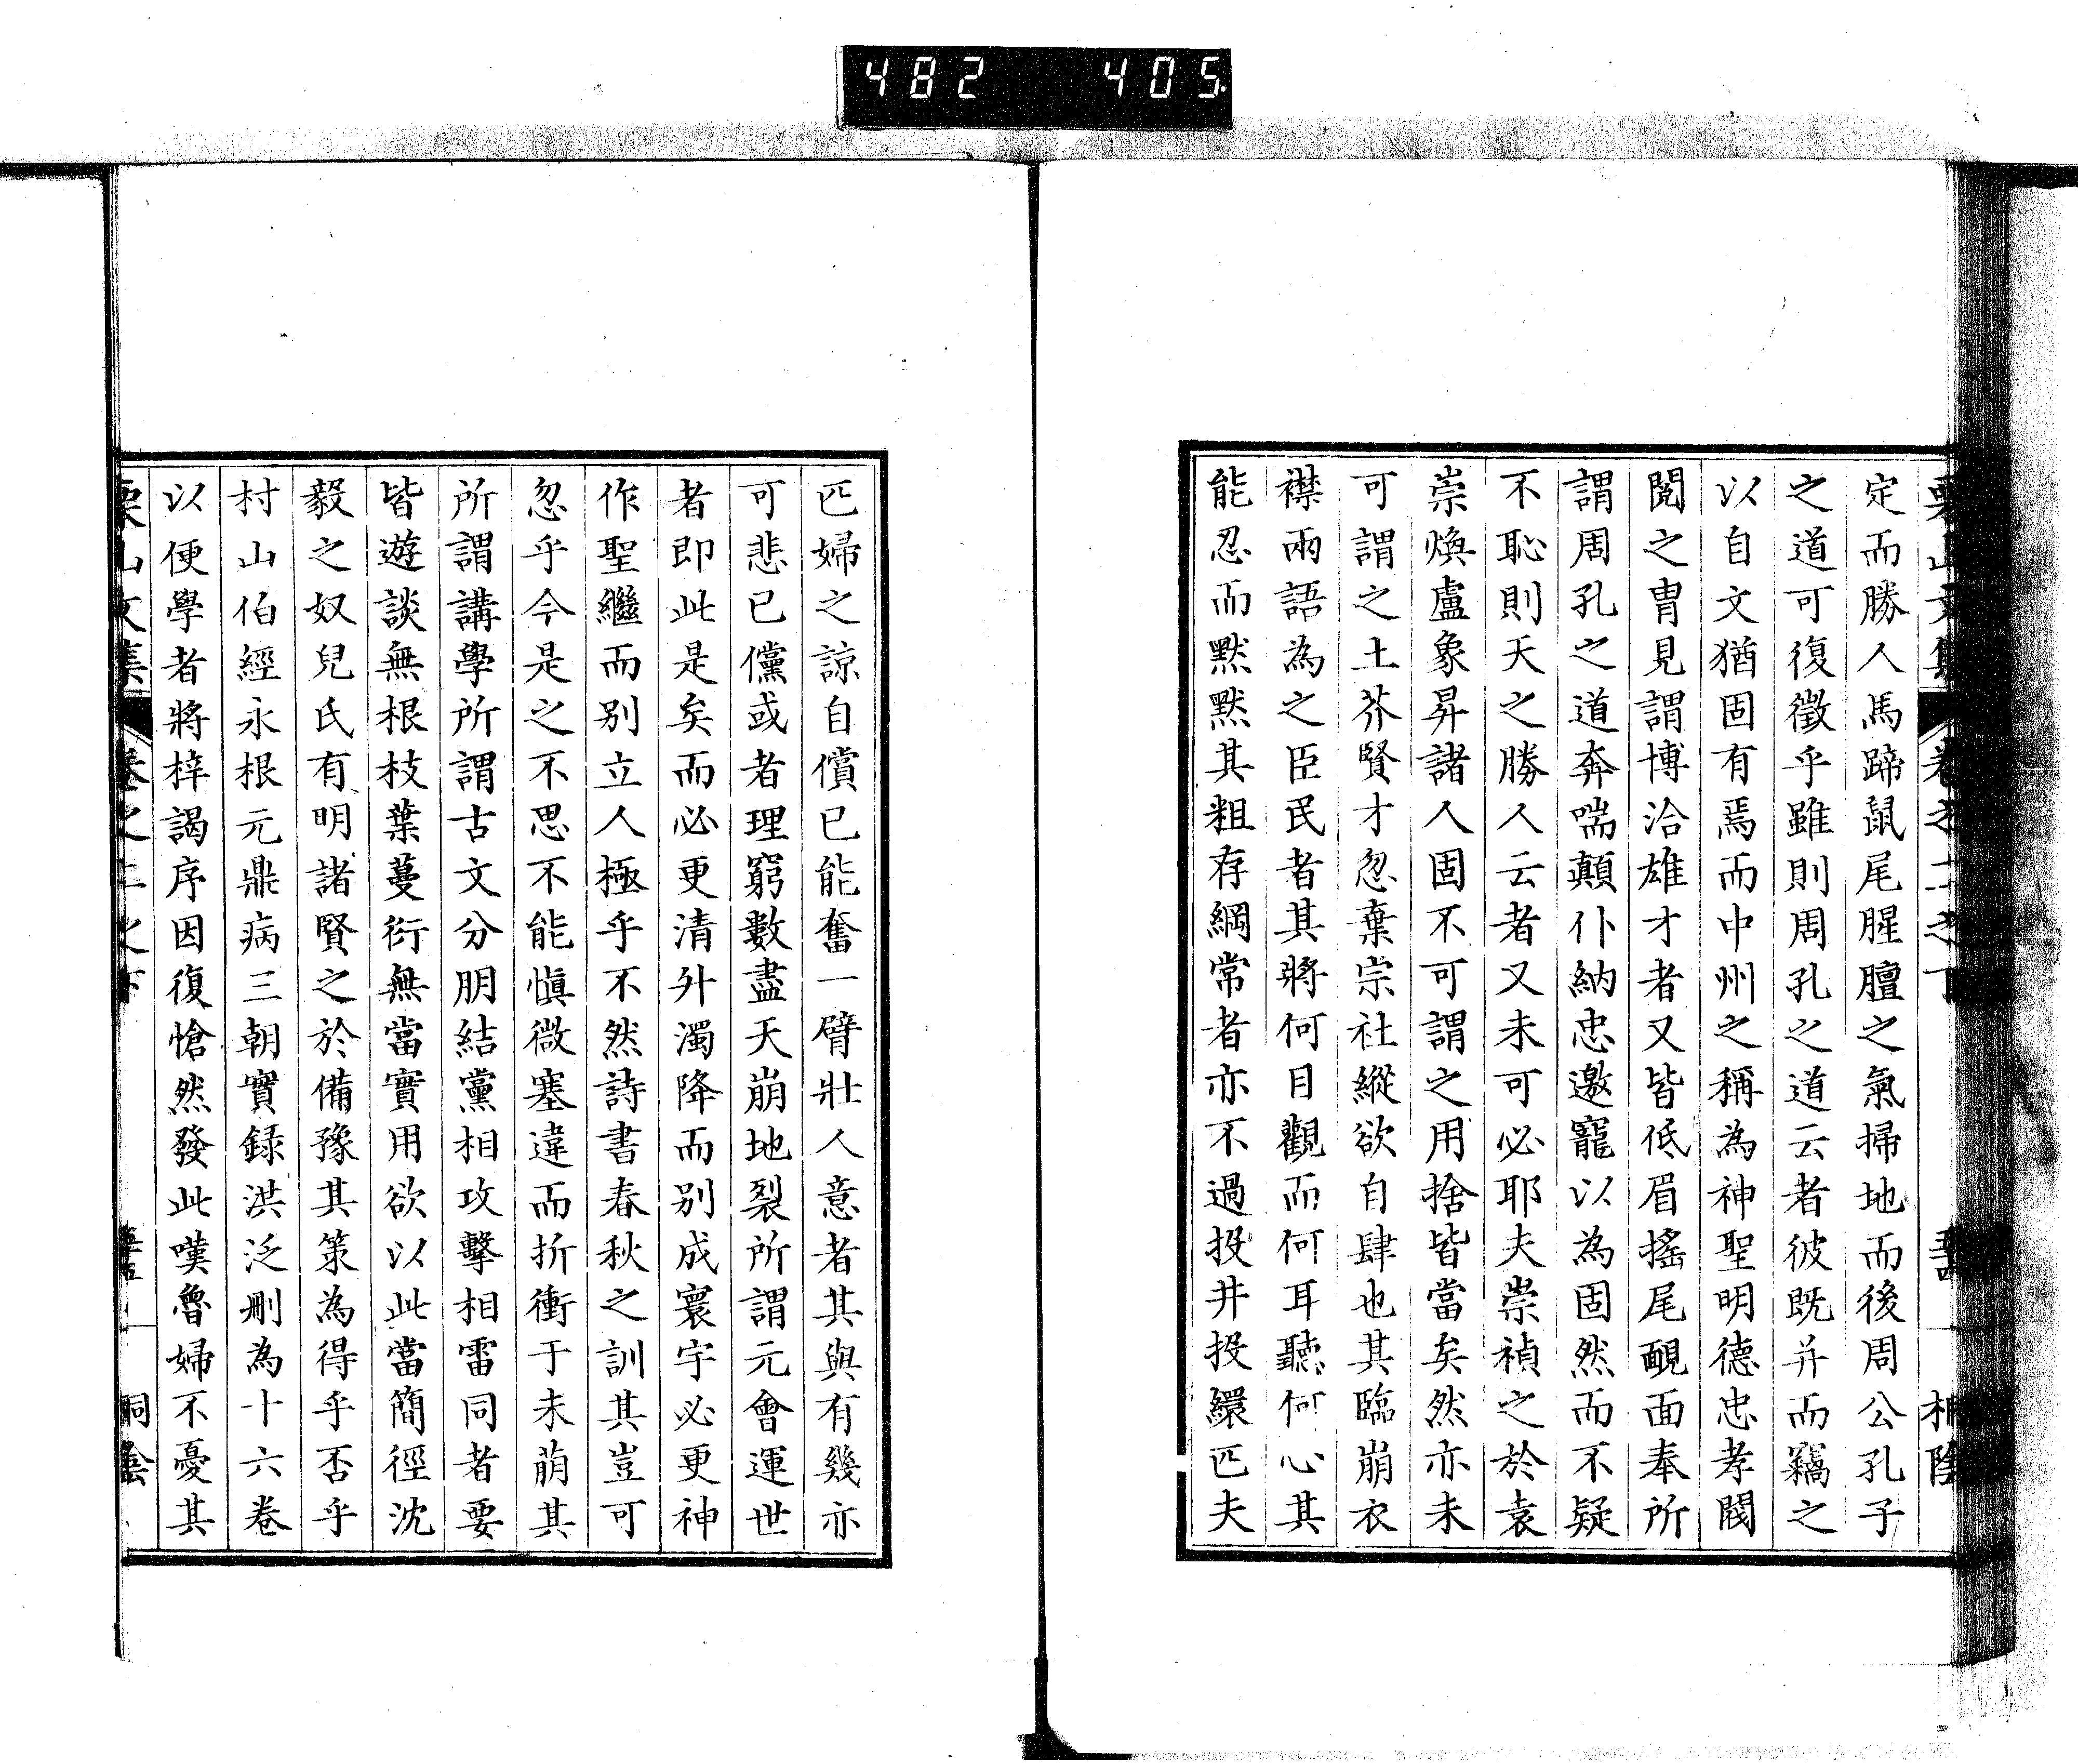 482 405
栗山文集 卷之二之下 桐陰
定而勝人馬蹄鼠尾腥膻之氣掃地而後周公孔子
之道可復徵乎雖則周孔之道云者彼既并而竊之
以自文猶固有焉而中州之稱為神聖明德忠孝閥
閱之胄見謂博洽雄才者又皆低眉搖尾靦面奉所
謂周孔之道奔喘顛仆納忠邀寵以為固然而不疑
不恥則天之勝人云者又未可必耶夫崇禎之於袁
崇煥盧象昇諸人固不可謂之用捨皆當矣然亦未
可謂之土芥賢才忽棄宗社縱欲自肆也其臨崩衣
襟兩語為之臣民者其將何目觀而何耳聽何心其
能忍而默默其粗存綱常者亦不過投井投繯匹夫
匹婦之諒自償已能奮一臂壯人意者其與有幾亦
可悲已儻或者理窮數盡天崩地裂所謂元會運世
者即此是矣而必更清升濁降而別成寰宇必更神
作聖繼而別立人極乎不然詩書春秋之訓其豈可
忽乎今是之不思不能慎微塞違而折衝于未萠其
所謂講學所謂古文分朋結黨相攻擊相雷同者要
皆遊談無根枝葉蔓衍無當實用欲以此當簡徑沈
毅之奴兒氏有明諸賢之於備豫其策為得乎否乎
村山伯經永根元鼎病三朝實録洪泛刪為十六卷
以便學者將梓謁序因復愴然發此嘆魯婦不憂其
栗山文集 卷之二之下 桐陰